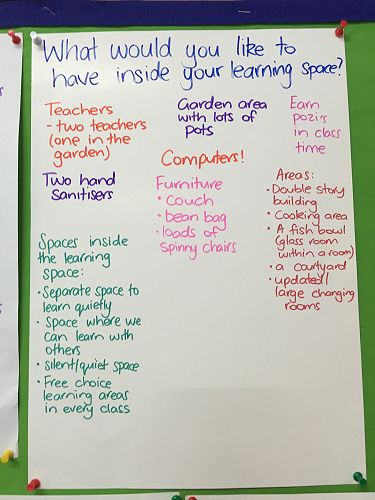 What would you like to
have inside your learning space?
Teachers
- two teachers
(one in the
garden)
Garden area
with lots of
pots
Earn
pozi's
in class
time
Computers!
Two hand
sanitisers
Furniture
• couch
• bean bag
• loads of
spinny chairs
Areas:
• Double story
building
• Cooking area
• A fish bowl
(glass room
within a room)
• a courtyard
• updated/
large changing
rooms
Spaces inside
the learning
space:
• Separate space to
learn quietly
• Space where we
can learn with
others
• silent/quiet space
• Free choice
learning areas
in every class